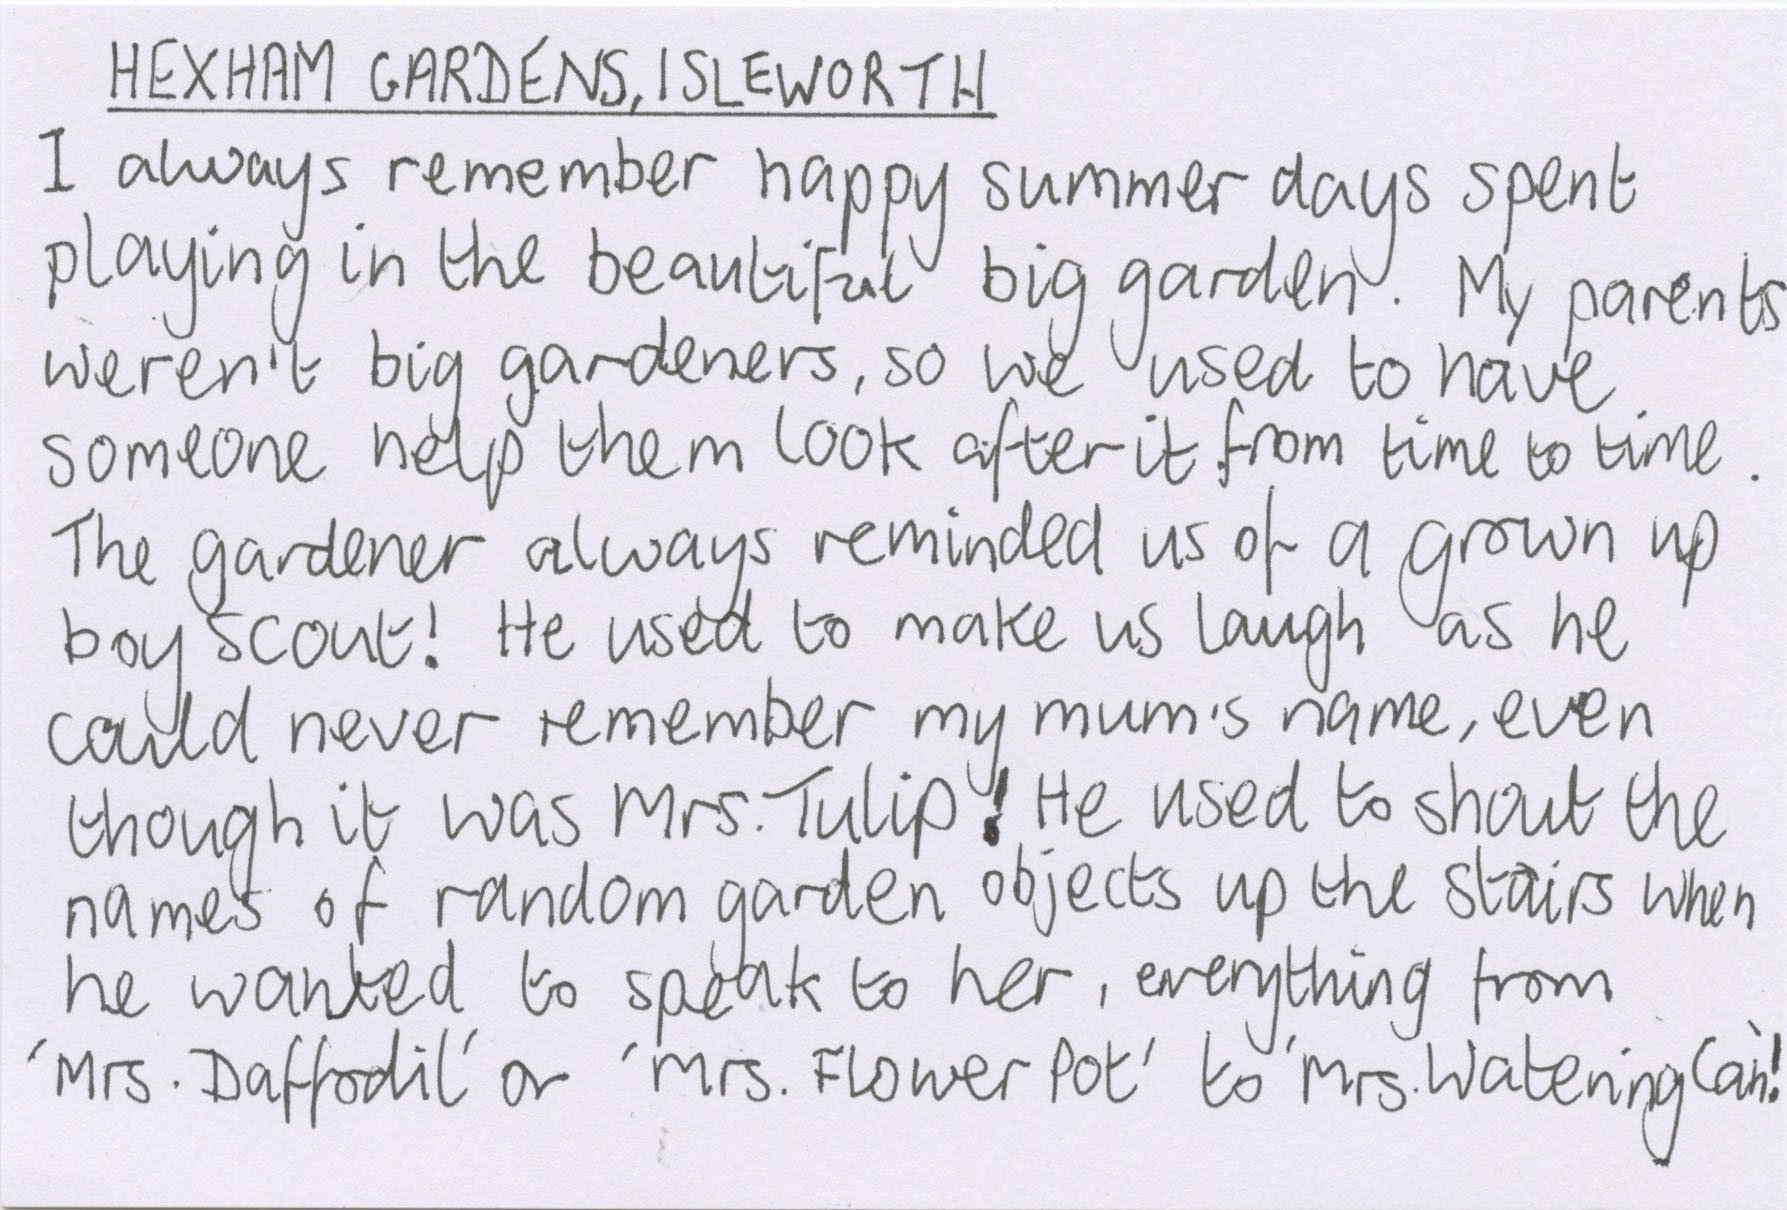 HEXHAM GARDENS, ISLEWORTH
I always remember happy summer days spent
playing in the beautiful big garden. My parents
weren't big gardeners, so we used to have
someone help them look after it from time to time.
The gardener always reminded us of a grown up
boy scout! He used to make us laugh as he
could never remember my mum's name, even
though it was Mrs. Tulip! He used to shout the
names of random garden objects up the stairs when
he wanted to speak to her, everything from
'Mrs. Daffodil' or 'Mrs. Flower Pot' to 'Mrs. Watering Can'!